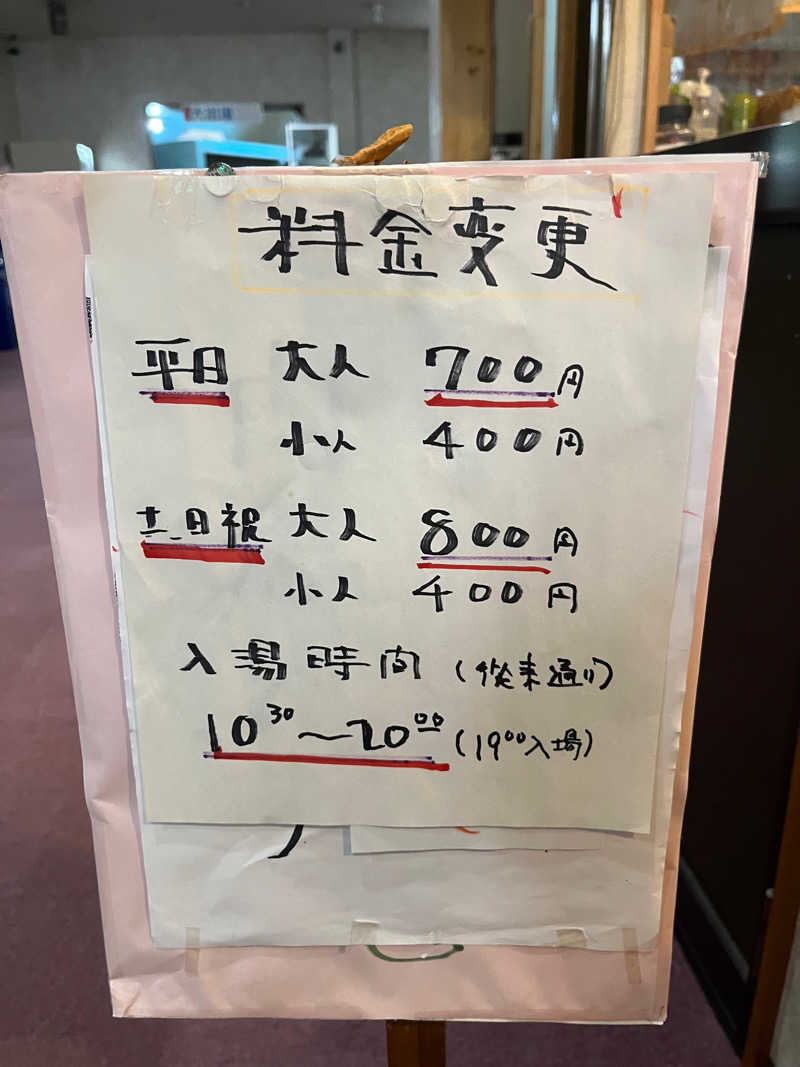 料金変更
平日 大人 700円
小人 400円
土日祝 大人 800円
小人 400円
入場時間 (従来通り)
10³⁰~20⁰⁰ (19⁰⁰入場)